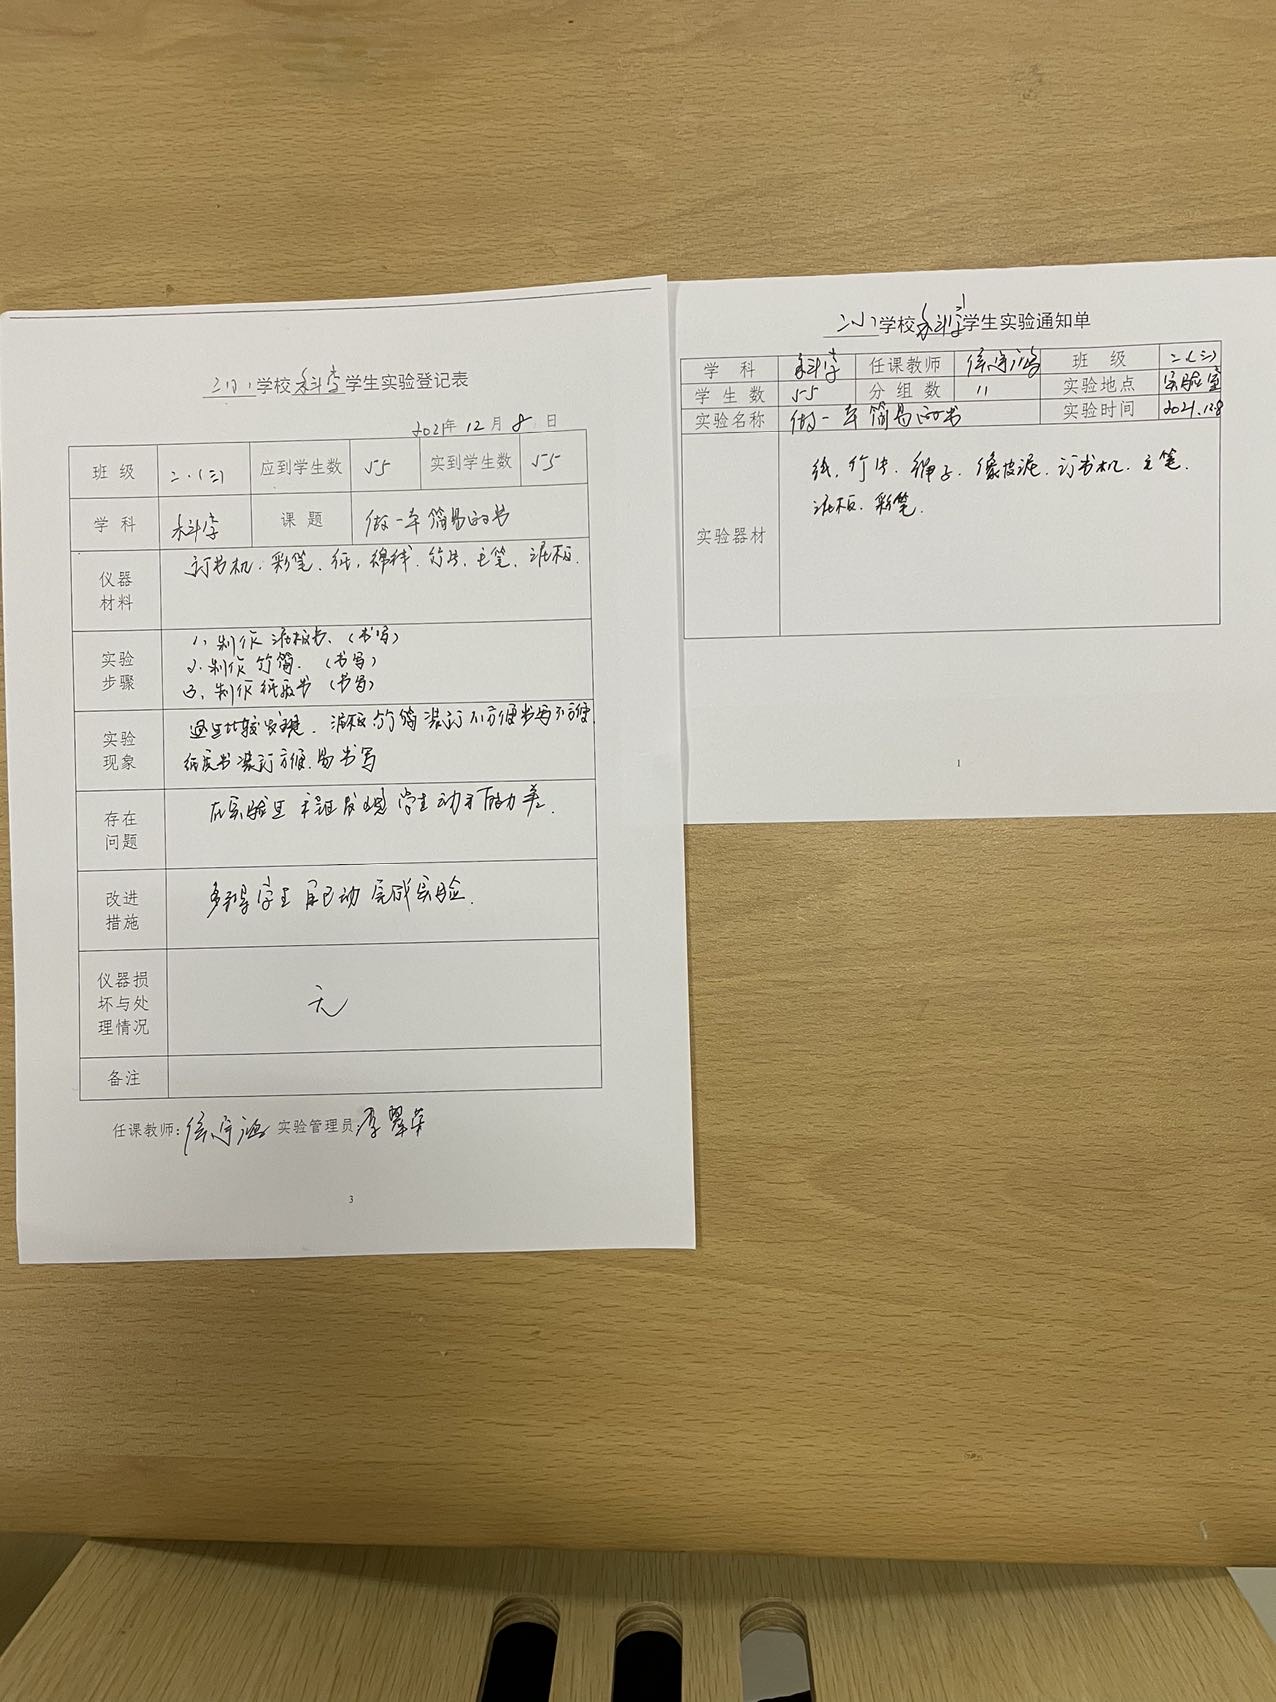 学校科学学生实验登记表
2021年12月8日
班级 二.(三) 应到学生数 55 实到学生数 55
学科 科学 课题 做一本简易的书
仪器材料 订书机、彩笔、纸、棉线、竹片、毛笔、泥板.
实验步骤 1、制作泥板书、(书写)
2.制作竹简.(书写)
3、制作纸质书(书写)
实验现象 通过比较发现、泥板竹简装订不方便书写不方便.
纸质书装订方便.易书写
存在问题 在实验过程发现学生动手能力差.
改进措施 多指导学生自己动完成实验.
仪器损坏与处理情况 无
备注
任课教师: 实验管理员:李翠英
3
二小学校科学学生实验通知单
学科 科学 任课教师 班级 二(三)
学生数 55 分组数 11 实验地点 实验室
实验名称 做一本简易的书 实验时间 2021.12.8
实验器材 纸、竹片、绳子、橡皮泥、订书机、毛笔、
泥板、彩笔.
1